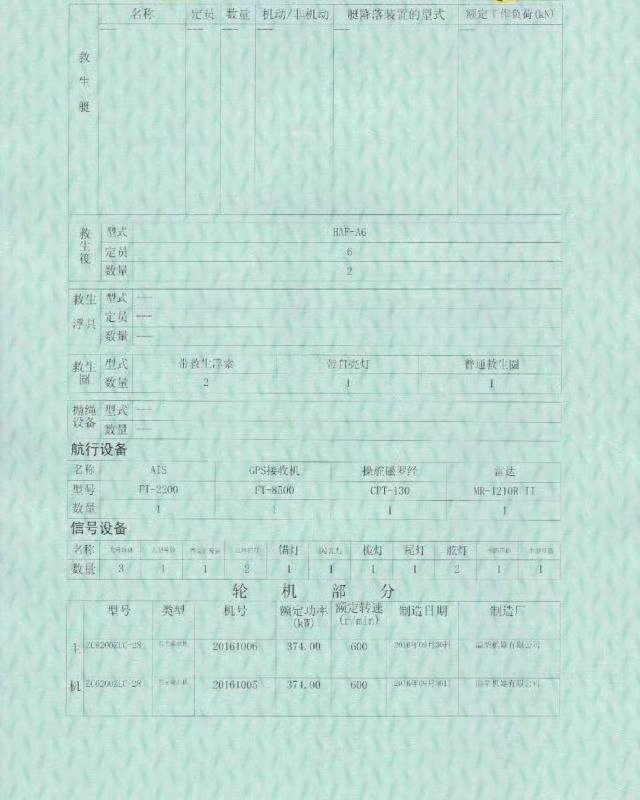 名称 定员 数量 机动/非机动 艇降落装置的型式 额定工作负荷(kN)
救生艇 --- --- --- --- --- ---
救生筏 型式 HAF-A6
定员 6
数量 2
救生浮具 型式 ---
定员 ---
数量 ---
救生圈 型式 带救生浮索 带自亮灯 普通救生圈
数量 2 1 1
抛绳设备 型式 ---
数量 ---
航行设备
名称 AIS GPS接收机 操舵磁罗经 雷达
型号 FT-2200 FT-8500 CPT-130 MR-1210R II
数量 1 1 1 1
信号设备
名称 锚灯 闪光灯 桅灯 尾灯 舷灯
数量 3 1 1 2 1 1 1 1 2 1 1
轮机部分
型号 类型 机号 额定功率(kW) 额定转速(r/min) 制造日期 制造厂
主机 ZC6200ZLC-28 20161006 374.00 600 2016年09月30日 机器有限公司
ZC6200ZLC-28 20161005 374.00 600 2016年09月30日 机器有限公司